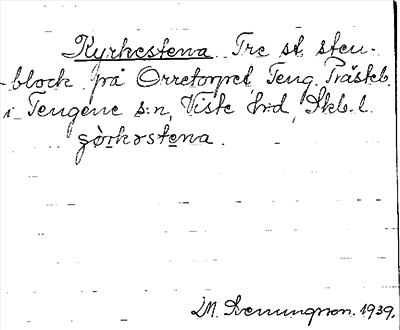 Kyrkestena. Tre st. sten-
block på Orretorpet Teng. Prästeb.
i Tengene s:n, Viste h:d, Skb. l.
M. Benningson. 1939.